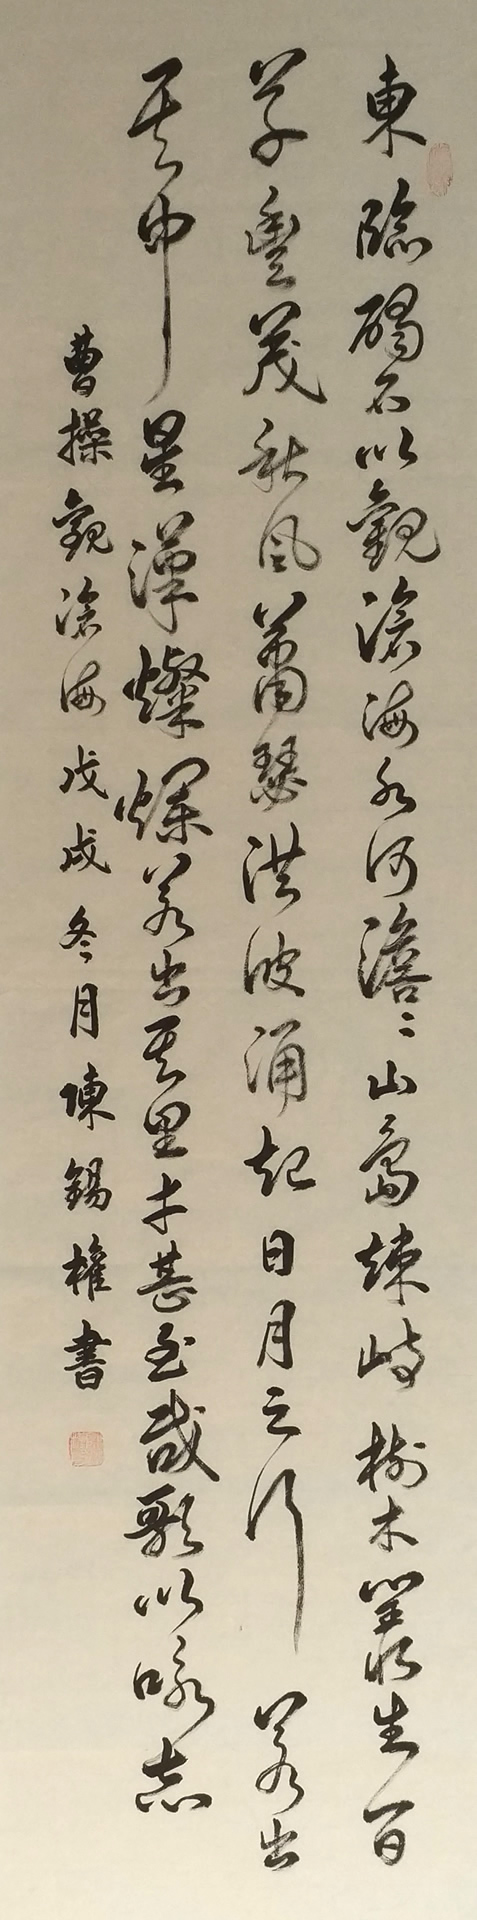 東臨碣石以觀滄海水何澹〻山島竦峙樹木叢生百
草豐茂秋風蕭瑟洪波涌起日月之行若出
其中星漢燦爛若出其里幸甚至哉歌以咏志
曹操觀滄海戊戌冬月陳錫權書